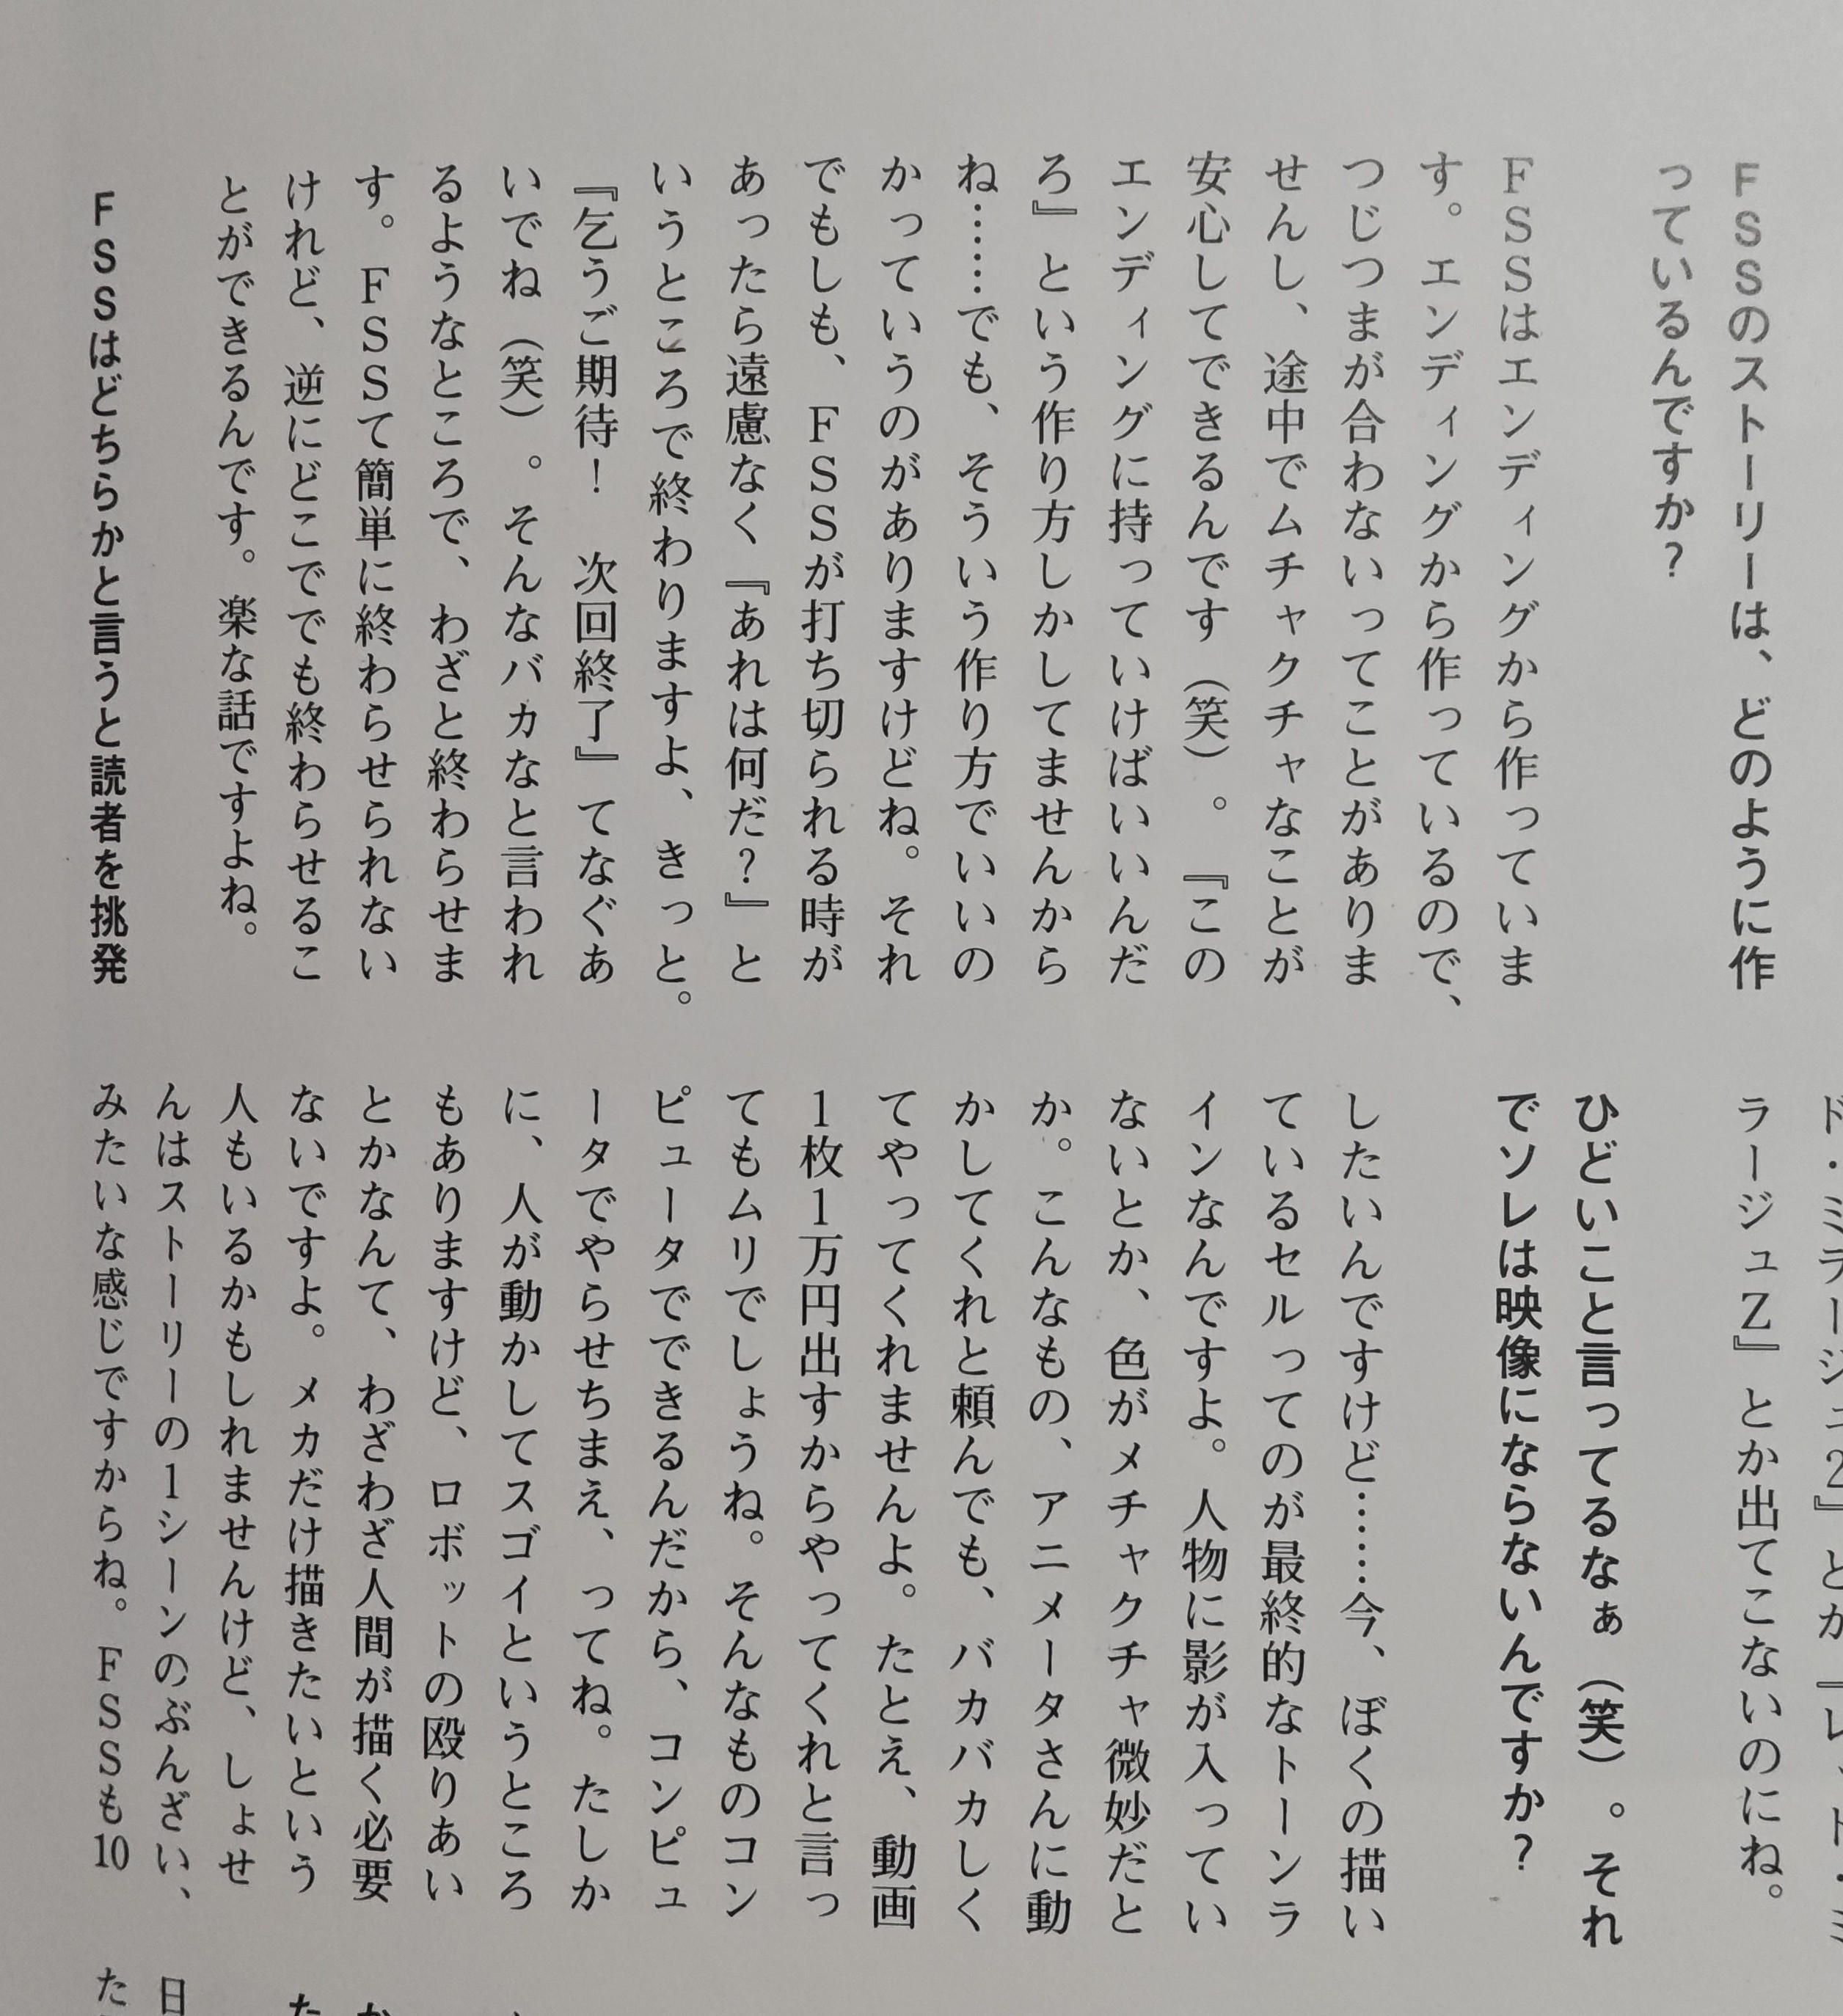 FSSのストーリーは、どのように作
っているんですか?
FSSはエンディングから作っていま
す。エンディングから作っているので、
つじつまが合わないってことがありま
せんし、途中でムチャクチャなことが
安心してできるんです(笑)。『この
エンディングに持っていけばいいんだ
ろ』という作り方しかしてませんから
ね……でも、そういう作り方でいいの
かっていうのがありますけどね。それ
でもしも、FSSが打ち切られる時が
あったら遠慮なく『あれは何だ?』と
いうところで終わりますよ、きっと。
『乞うご期待! 次回終了』てなぐあ
いでね(笑)。そんなバカなと言われ
るようなところで、わざと終わらせま
す。FSSて簡単に終わらせられない
けれど、逆にどこででも終わらせるこ
とができるんです。楽な話ですよね。
FSSはどちらかと言うと読者を挑発
ド・ミラージュ2』とか『レッド・ミ
ラージュZ』とか出てこないのにね。
ひどいこと言ってるなぁ(笑)。それ
でソレは映像にならないんですか?
したいんですけど……今、ぼくの描い
ているセルってのが最終的なトーンラ
インなんですよ。人物に影が入ってい
ないとか、色がメチャクチャ微妙だと
か。こんなもの、アニメータさんに動
かしてくれと頼んでも、バカバカしく
てやってくれませんよ。たとえ、動画
1枚1万円出すからやってくれと言っ
てもムリでしょうね。そんなものコン
ピュータでできるんだから、コンピュ
ータでやらせちまえ、ってね。たしか
に、人が動かしてスゴイというところ
もありますけど、ロボットの殴りあい
とかなんて、わざわざ人間が描く必要
ないですよ。メカだけ描きたいという
人もいるかもしれませんけど、しょせ
んはストーリーの1シーンのぶんざい、
みたいな感じですからね。FSSも10
た
日
た